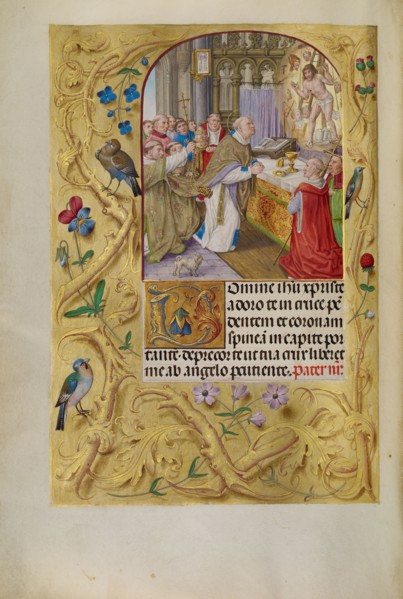 Domine ihu xpriste
adoro te in cruce pē
dentem et coronam
spineā in capite por
tantē. deprecor te ut tua crux liberet
me ab angelo pcutiente. Pater nr̄.